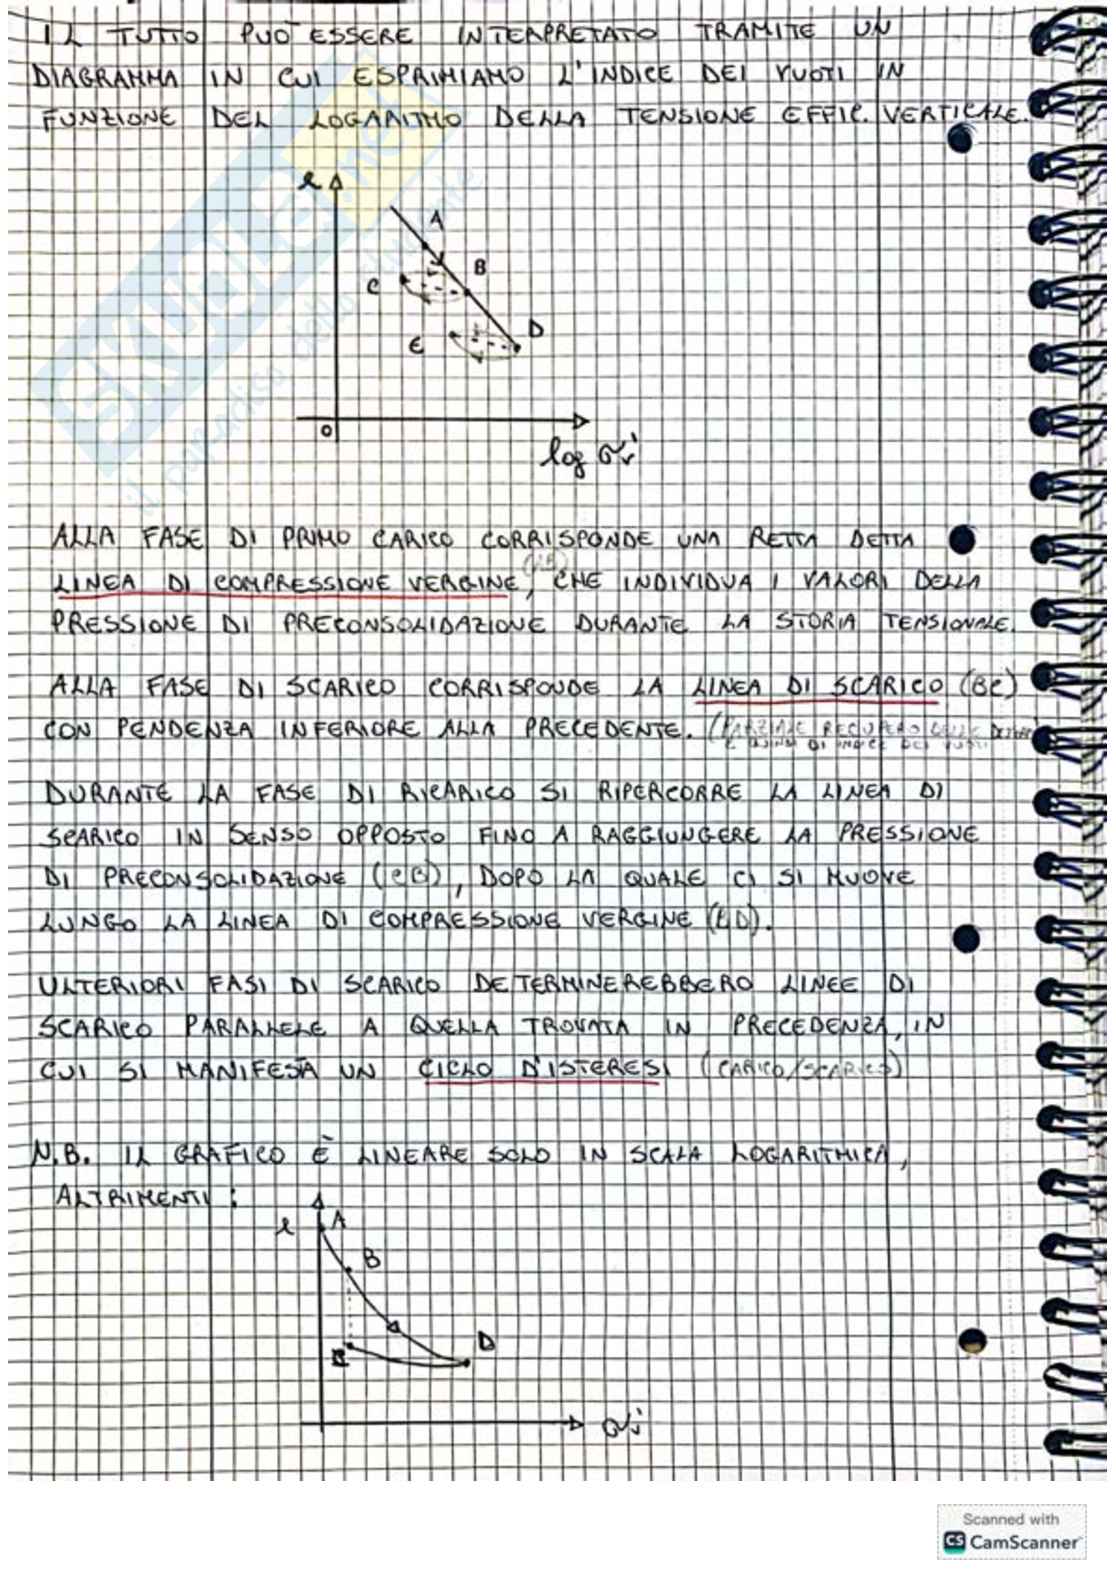 IL TUTTO PUÒ ESSERE INTERPRETATO TRAMITE UN
DIAGRAMMA IN CUI ESPRIMIAMO L'INDICE DEI VUOTI IN
FUNZIONE DEL LOGARITMO DELLA TENSIONE EFFIC. VERTICALE.
e
A
B
C
D
E
O
log σv'
ALLA FASE DI PRIMO CARICO CORRISPONDE UNA RETTA DETTA
LINEA DI COMPRESSIONE VERGINE (AB), CHE INDIVIDUA I VALORI DELLA
PRESSIONE DI PRECONSOLIDAZIONE DURANTE LA STORIA TENSIONALE.
ALLA FASE DI SCARICO CORRISPONDE LA LINEA DI SCARICO (BC)
CON PENDENZA INFERIORE ALLA PRECEDENTE. (PARZIALE RECUPERO DELLE
E QUINDI DI INDICE DEI VUOTI
DURANTE LA FASE DI RICARICO SI RIPERCORRE LA LINEA DI
SCARICO IN SENSO OPPOSTO FINO A RAGGIUNGERE LA PRESSIONE
DI PRECONSOLIDAZIONE (CB), DOPO LA QUALE CI SI MUOVE
LUNGO LA LINEA DI COMPRESSIONE VERGINE (BD).
ULTERIORI FASI DI SCARICO DETERMINEREBBERO LINEE DI
SCARICO PARALLELE A QUELLA TROVATA IN PRECEDENZA, IN
CUI SI MANIFESTA UN CICLO D'ISTERESI (CARICO/SCARICO)
N.B. IL GRAFICO È LINEARE SOLO IN SCALA LOGARITMICA,
ALTRIMENTI:
e
A
B
D
E
σv'
SKUOLA.net
il paradiso dello studente
Scanned with
CS CamScanner